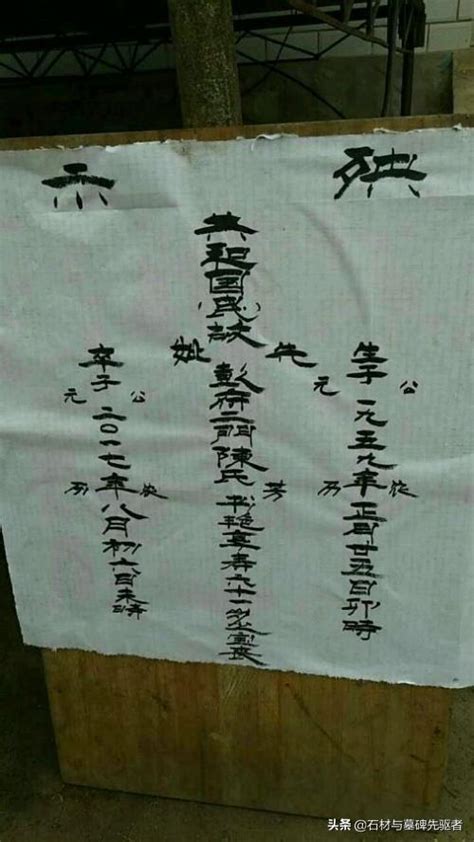 殃示
公元 农历
生于一九五九年正月廿五日卯時
共和国民故
先妣
彭府二門陳氏
芳
享寿六十一
公元 农历
卒于二〇一七年八月初六日未時
头条 @石材与墓碑先驱者